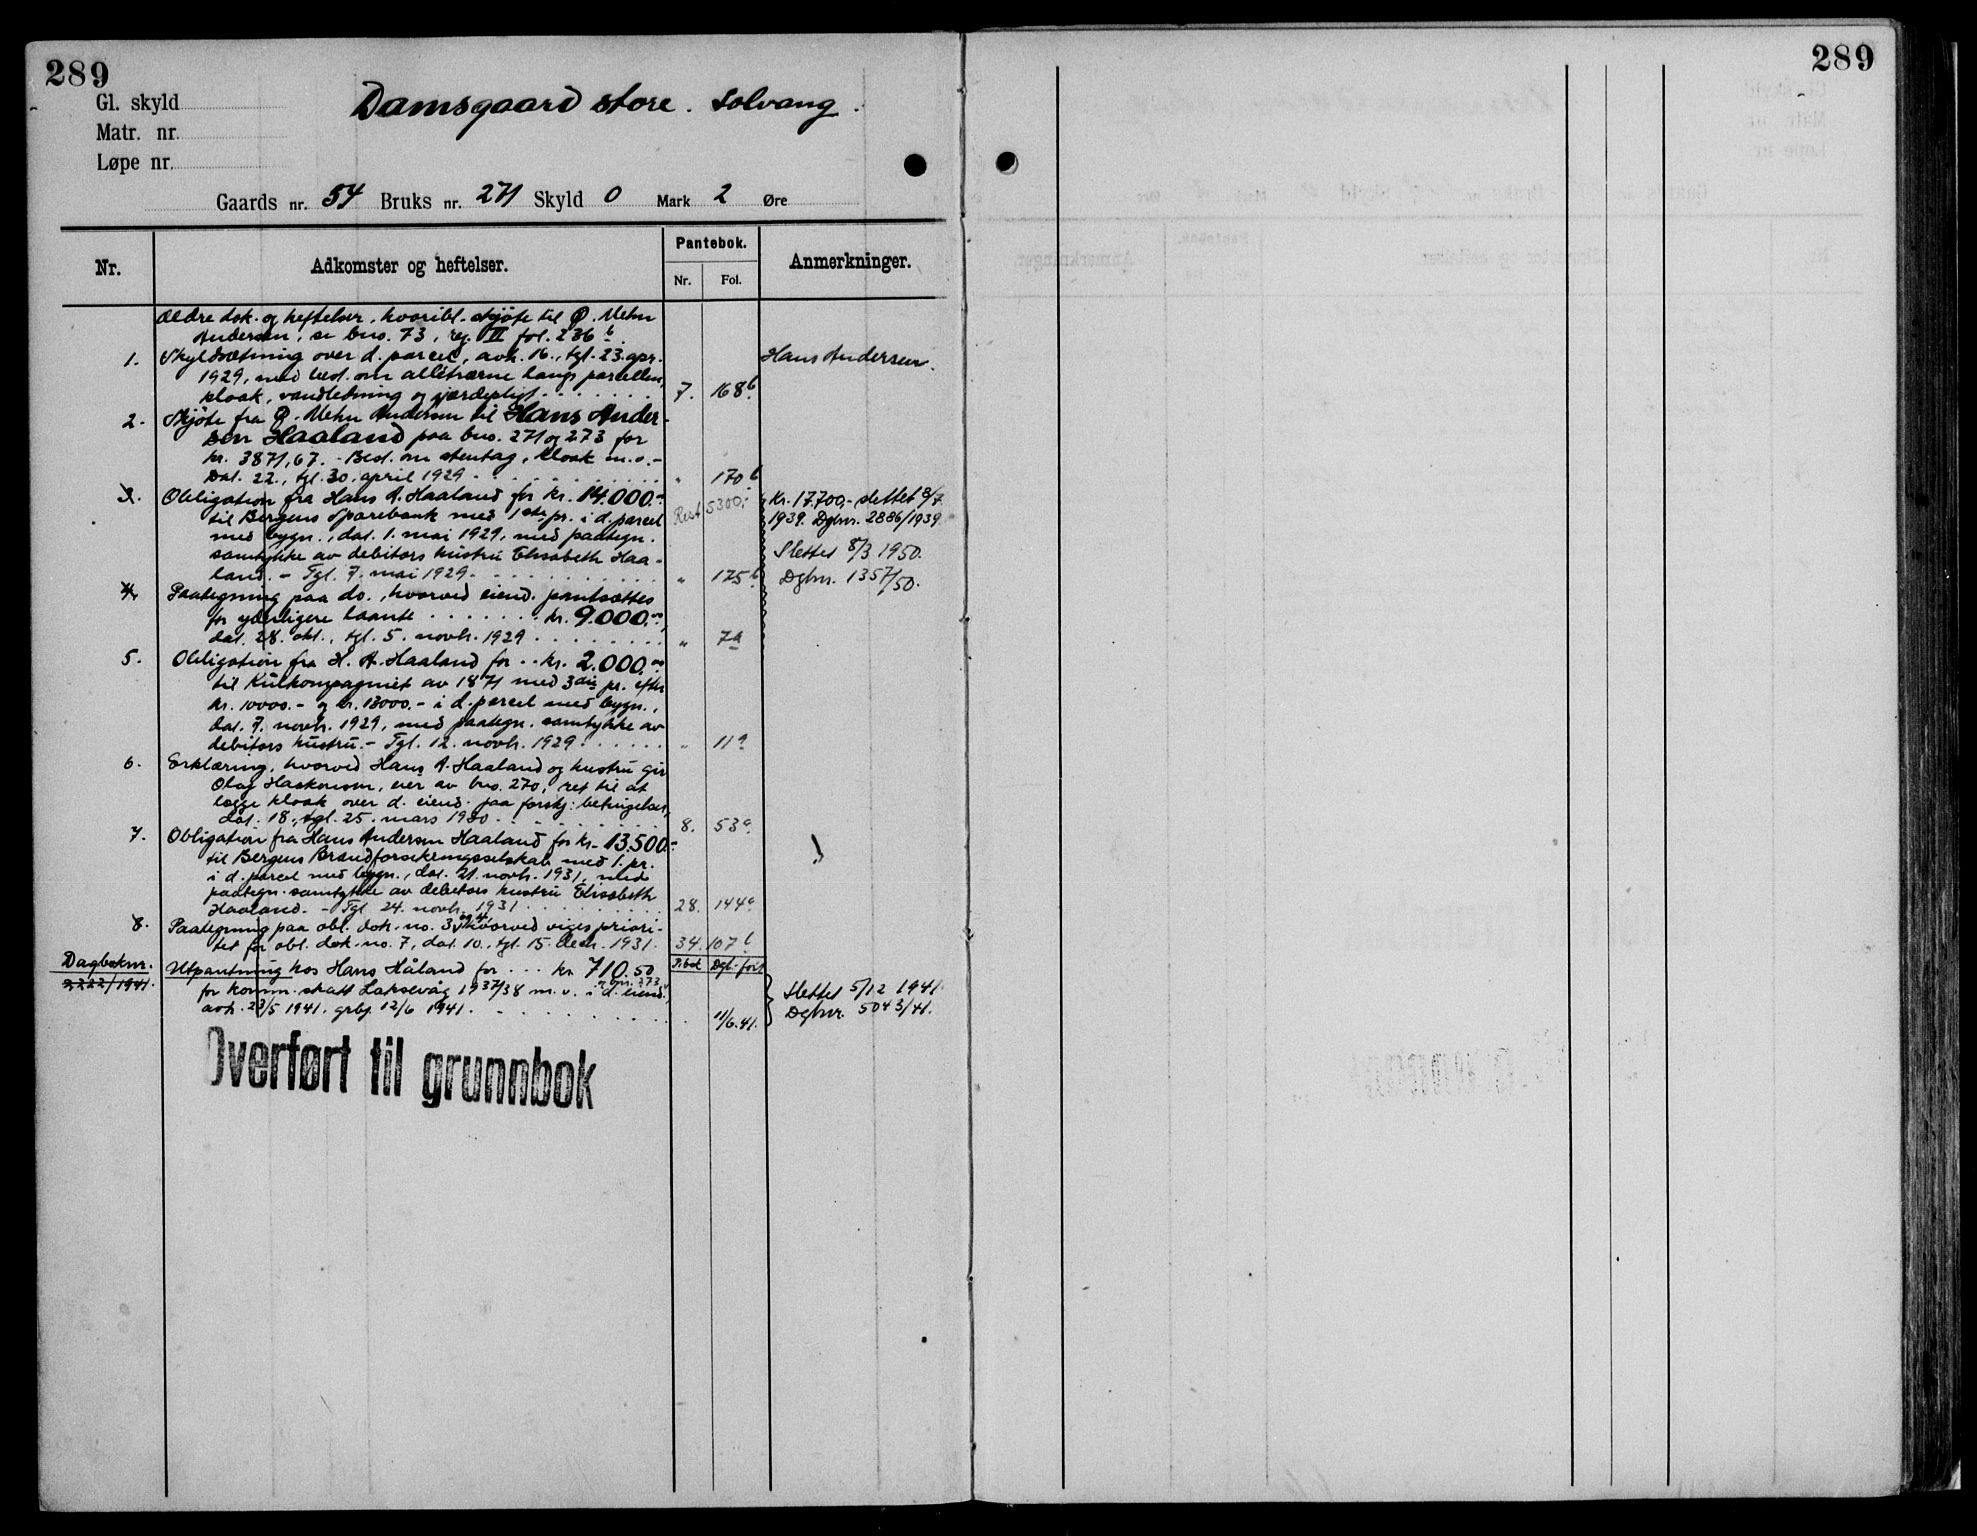 289
Gl. skyld
Matr. nr.
Løpe nr.
Damsgaard store. Solvang.
Gaards nr. 54 Bruks nr. 271 Skyld 0 Mark 2 Øre
Nr.
Adkomster og heftelser.
Pantebok.
Nr. Fol.
Anmerkninger.
Ældre dok. og heftelser, hvoribl. skjøte til Mehn
Andersen, se bno. 73, reg. VII fol. 236 b.
1. Skyldsætning over d. parcel, avh. 16., tgl. 23. apr. Hans Andersen.
1929, med best. om allétrærne langs parcellen,
kloak, vandledning og gjerdepligt 7. 168 b
2. Skjøte fra Mehn Andersen til Hans Ander-
sen Haaland paa bno. 271 og 273 for
kr. 3871,67. - Best. om stentag, kloak m.v. -
Dat. 22., tgl. 30. april 1929 " 170 b
3. Obligation fra Hans A. Haaland for kr. 14.000.- Rest 5300,- Kr. 17.700,- slettet 8/7
til Bergens Sparebank med 1ste pr. i d. parcel 1939. Dgbnr. 2886/1939.
med bygn., dat. 1. mai 1929, med paategn.
samtykke av debitors hustru Elisabeth Haa- Slettet 8/3 1950.
land. - Tgl. 7. mai 1929. " 175 b Dgbnr. 1357/50.
4. Paategning paa do., hvorved eiend. pantsættes
for yderligere laante kr. 9.000.-,
dat. 28. okt., tgl. 5. novbr. 1929 " 7a
5. Obligation fra H. A. Haaland for kr. 2.000.-
til Kulkompagniet av 1871 med 3die pr. efter
kr. 10000.- og kr. 13000.- i d. parcel med bygn.,
dat. 7. novbr. 1929, med paategn. samtykke av
debitors hustru. - Tgl. 12. novbr. 1929 " 11a
6. Erklæring, hvorved Hans A. Haaland og hustru gir
Olaf Haakonsen, eier av bno. 270, ret til at
lægge kloak over d. eiend. paa forskj. betingelser,
dat. 18., tgl. 25. mars 1930 8. 53a
7. Obligation fra Hans Andersen Haaland for kr. 13.500.-
til Bergens Brandforsikringsselskab med 1. pr.
i d. parcel med bygn., dat. 21. novbr. 1931, med
paategn. samtykke av debitors hustru Elisabeth
Haaland. - Tgl. 24. novbr. 1931 28. 144a
8. Paategning paa obl. dok. no. 3 og 4, hvorved viges priori-
tet for obl. dok. no. 7, dat. 10., tgl. 15. decbr. 1931. 34. 107 b
Dagboknr. Utpantning hos Hans Håland for kr 710.50 P.bok Dgb.-ført
2222/1941. for komm. skatt Laksevåg 1937/38 m.v. i d. eiend. og bnr. 273, Slettet 5/12 1941.
avh. 23/5 1941. grbf. 12/6 1941. 11/6.41. Dgbnr. 5043/41.
Overført til grunnbok
289